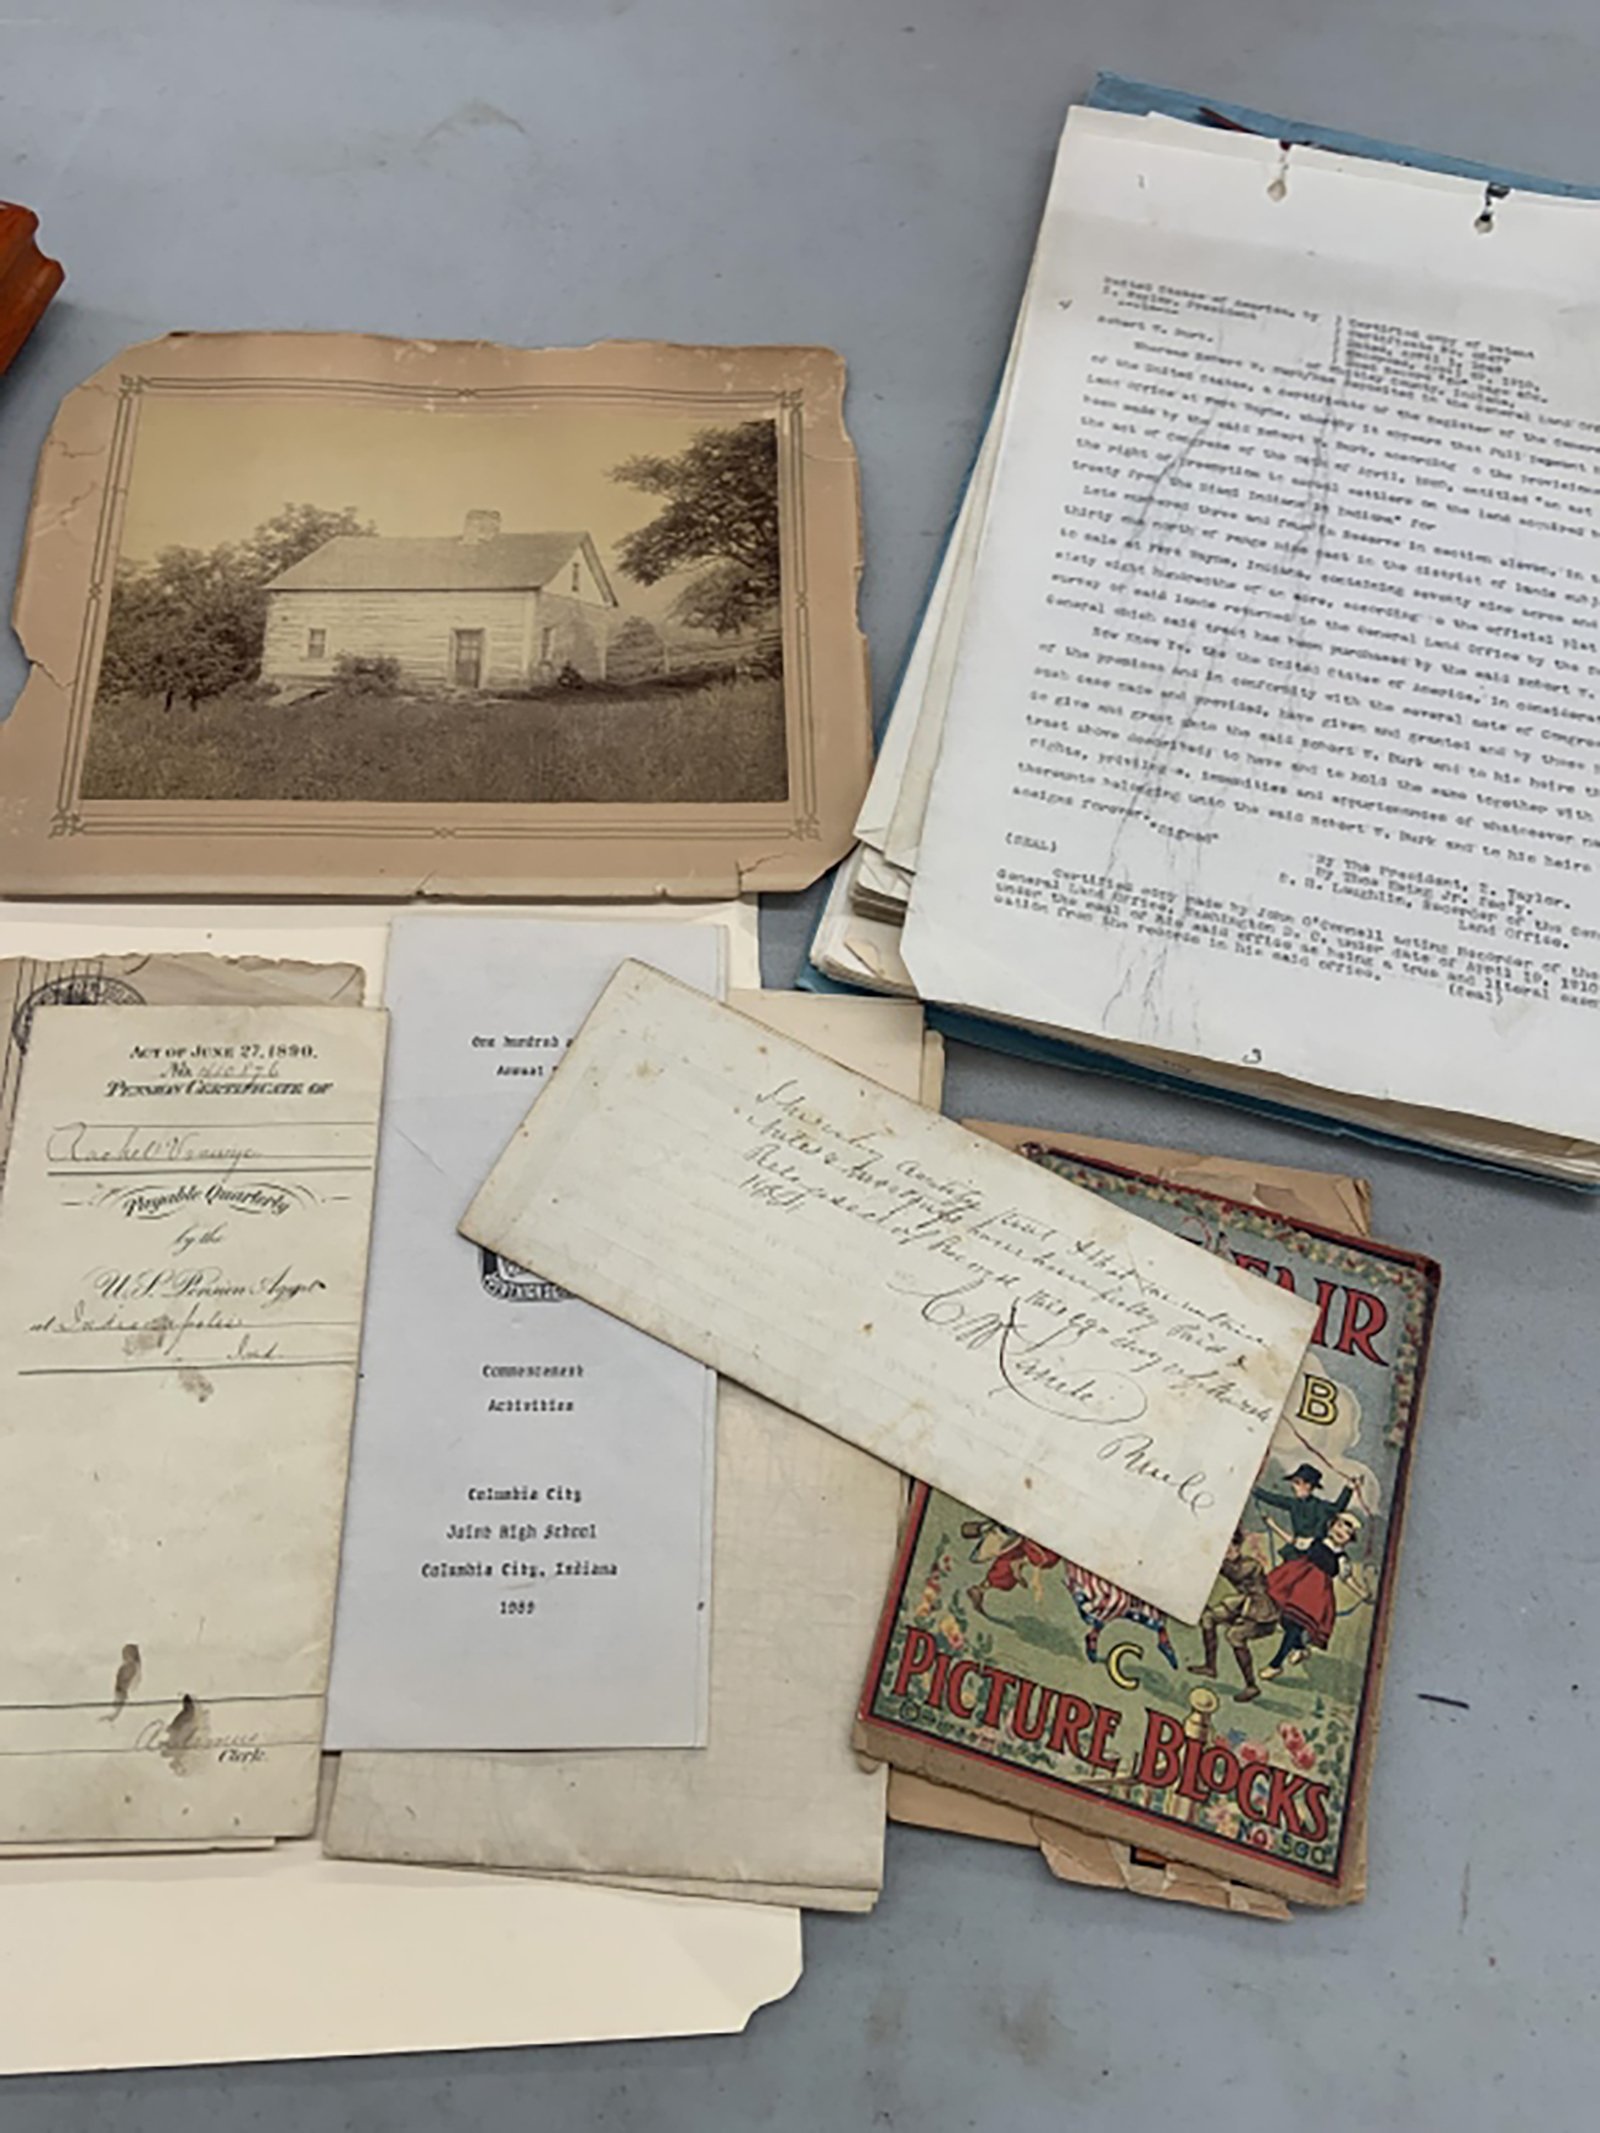 1
4
United States of America, by
Z. Taylor, President
Robert T. Burk.
Certified copy of patent
Certificate No.
Dated, April 1,
Recorded, April 27, 1910.
Deed Record page
of Whitley County, Indiana.
Whereas Robert T. Burk has deposited in the General Land
of the United States, a certificate of the Register of the
Land Office at Fort Wayne, whereby it appears that full payment
been made by the said Robert T. Burk, according o the provisions
the act of Congress of the 24th of April, entitled "an act
the right of preemption to actual settlers on the land acquired
treaty from the Miami Indians in Indiana" for
Lots numbered three and four in Reserve in section eleven, in
thirty one north of range nine east in the district of lands
to sale at Fort Wayne, Indiana, containing seventy nine acres and
sixty eight hundredths of an acre, according to the official plat
survey of said lands returned to the General Land Office by the
General which said tract has been purchased by the said Robert T.
Now Know Ye, the the United States of America, in
of the premises and in conformity with the several acts of
such case made and provided, have given and granted and by these
do give and grant unto the said Robert T. Burk and to his heirs
tract above described; to have and to hold the same together with
rights, privileges, immunities and appurtenances of whatsoever
thereunto belonging unto the said Robert T. Burk and to his heirs
assigns forever. "Signed"
(SEAL)
By The President, Z. Taylor.
By Thos Ewing Jr. Secy.
Laughlin, Recorder of the
Land Office.
Certified copy made by John O'Connell acting Recorder of the
General Land Office, Washington D. C. under date of April 19, 1910
under the seal of his said office as being a true and literal
from the records in his said office. (Seal)
3
Act of June 27, 1890.
No. 410876
Pension Certificate of
Rachel
Payable Quarterly
by the
U.S. Pension Agent
at Indianapolis
Ind.
Clerk.
One hundred
Annual
Commencement
Activities
Columbia City
Joint High School
Columbia City, Indiana
1989
I hereby certify that the within
Notes & Mortgage have been fully Paid &
Released of Record this day of March
FAIR
B
C
PICTURE BLOCKS
NO. 500